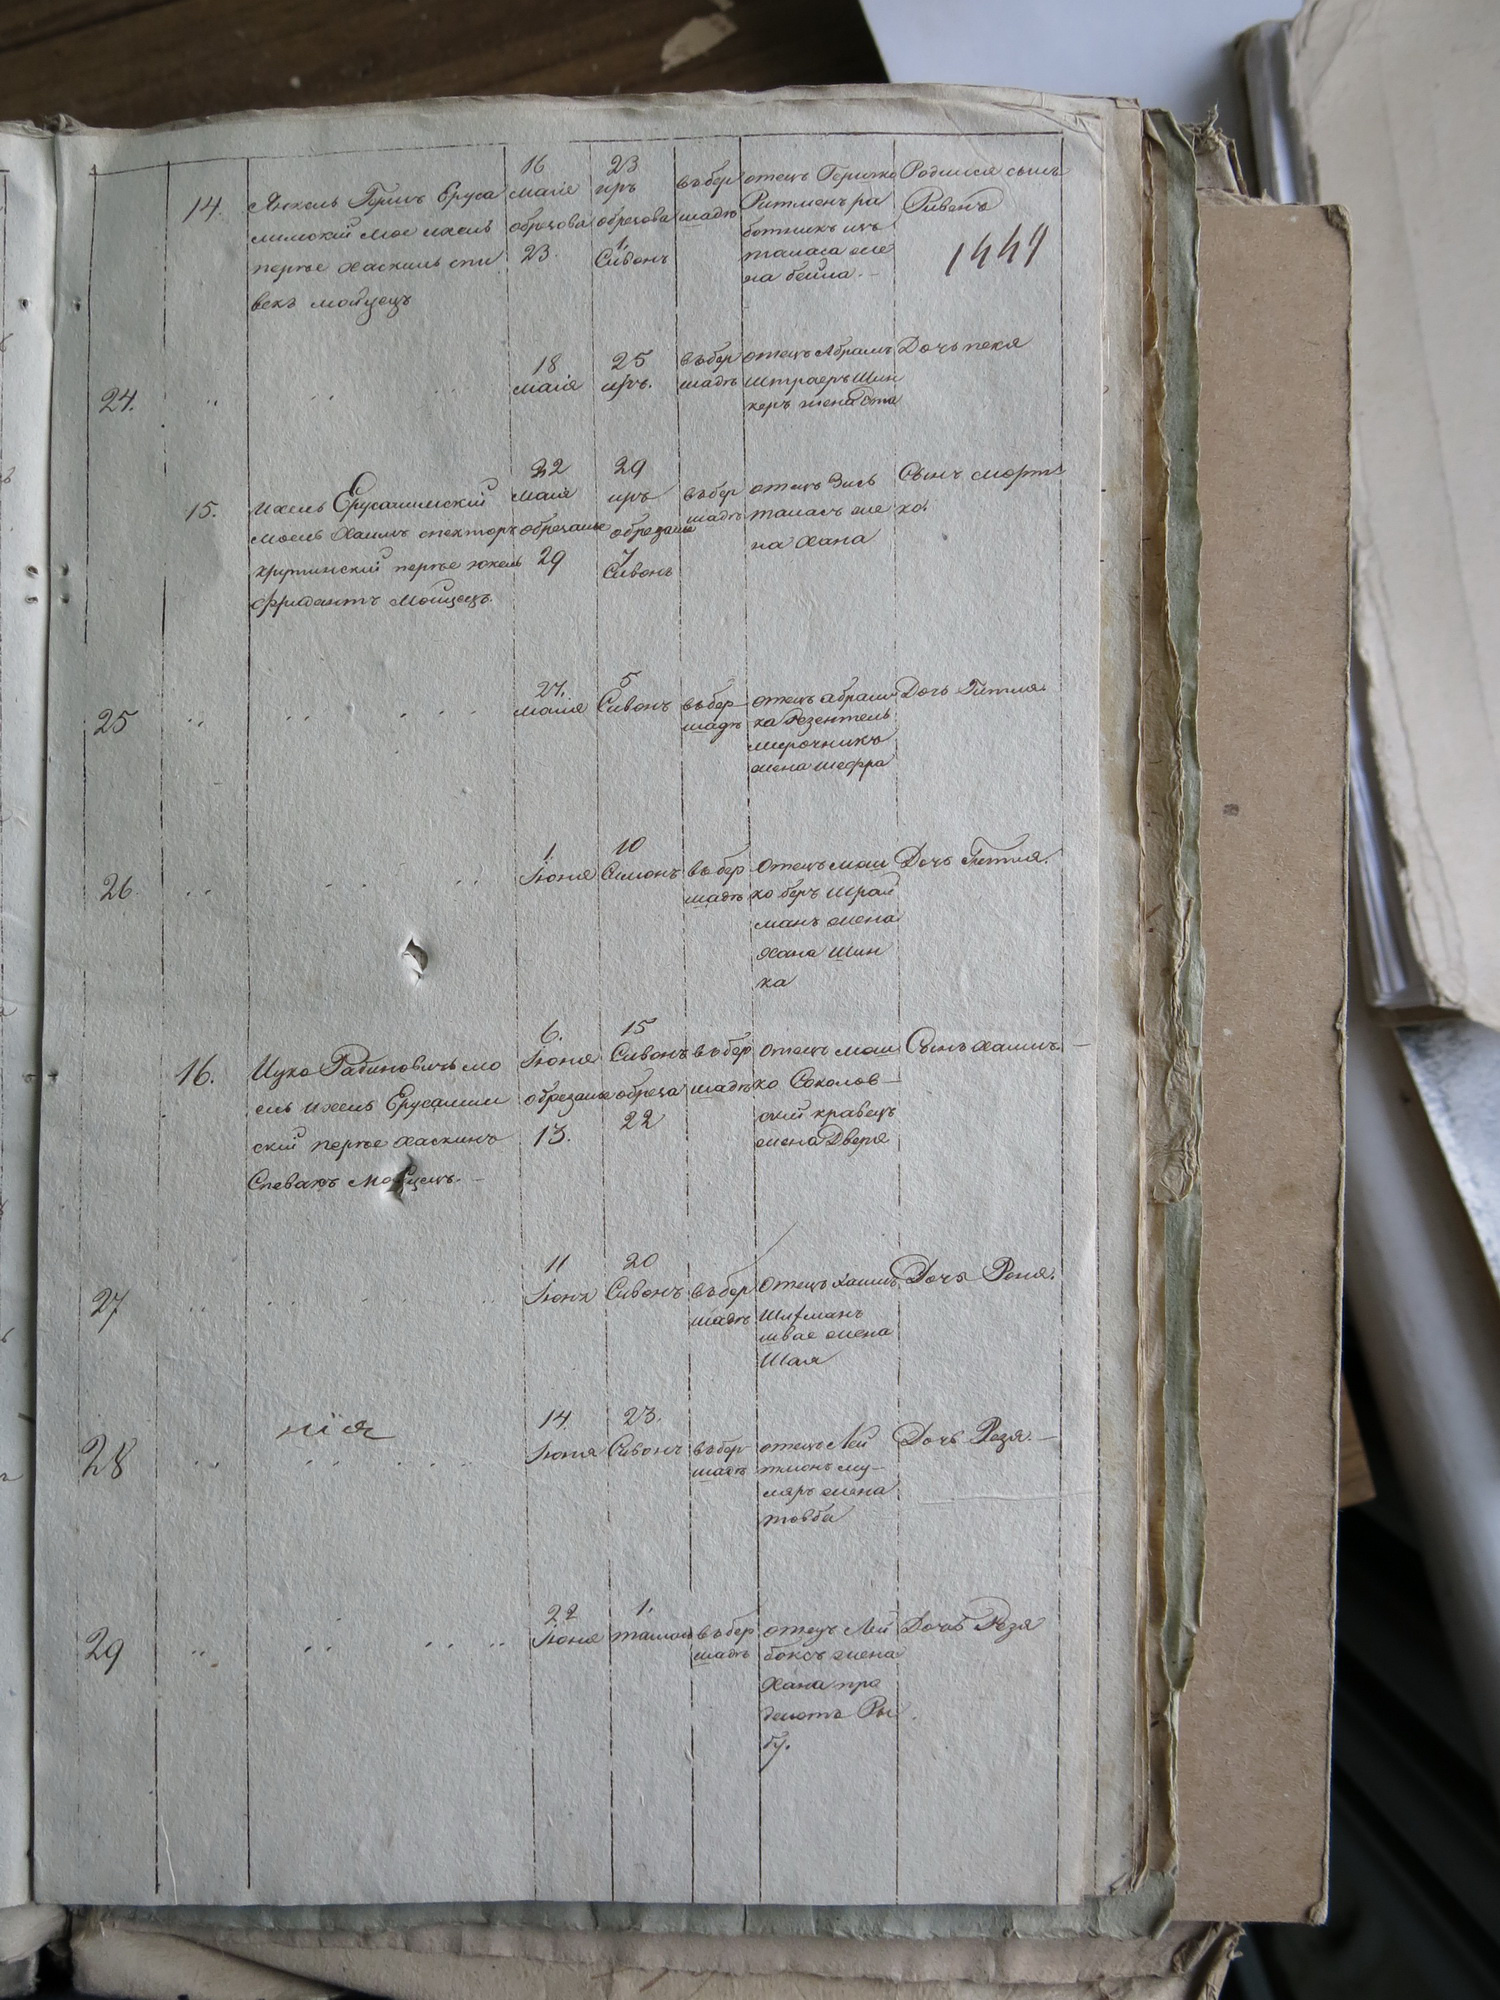 14.
Янкель Гершъ Еруса
лимский мое ихель
перее Хаскель спи
векъ мойцецъ
16
маія
обрезова
23.
23
иръ
обрезова
1
Сивонъ
въ бер
шадъ
отецъ Гершко
Ритменъ ра
ботникъ изъ
таласа же
на бейла.
Родился сынъ
Ривенъ
1441
24.
18
маія
25
иръ.
въ бер
шадъ
отецъ Абрамъ
штраеръ шин
керъ жена Эта
Дочь пекя
15.
ихель Ерусалимский
моель Хаимъ спекторъ
хрутинский перее юкель
фридантъ Мойцецъ.
22
маія
обрезание
29
29
иръ
обрезание
7
Сивонъ
въ бер
шадъ
отецъ Зись
таласъ же
на Хана
Сынъ мортъ
ко.
25
27.
маія
5
Сивонъ
въ бер
шадъ
отецъ абрам
ка Розентель
мирочникъ
жена шефра
Дочь Гитля.
26.
1.
Іюня
10
Симонъ
въ бер
шадъ
Отецъ мош
ко беръ шрай
манъ жена
Хана шин
ка
Дочь Гитля.
16.
Ицко Рабиновичь мо
ель ихель Ерусалим
ский перее Хаскинъ
Спевакъ Мойцецъ.
6.
Іюня
обрезание
13.
15
Сивонъ
обреза
22
въ бер
шадъ
отецъ мош
ко Соколов
ский кравецъ
жена Двера
Сынъ хаимъ.
27
11
Іюня
20
Сивонъ
въ бер
шадъ
Отецъ хаимъ
Шифманъ
швае жена
Шая
Дочь Роня.
28
нія
14.
Іюня
23.
Сивонъ
въ бер
шадъ
отецъ Лей
тмонъ му
ляръ жена
товба
Дочь Резя.
29
22
Іюня
1.
тамон
въ бер
шадъ
отецъ Лей
боксъ жена
Хана про
даютъ Ры
бу.
Дочь Резя